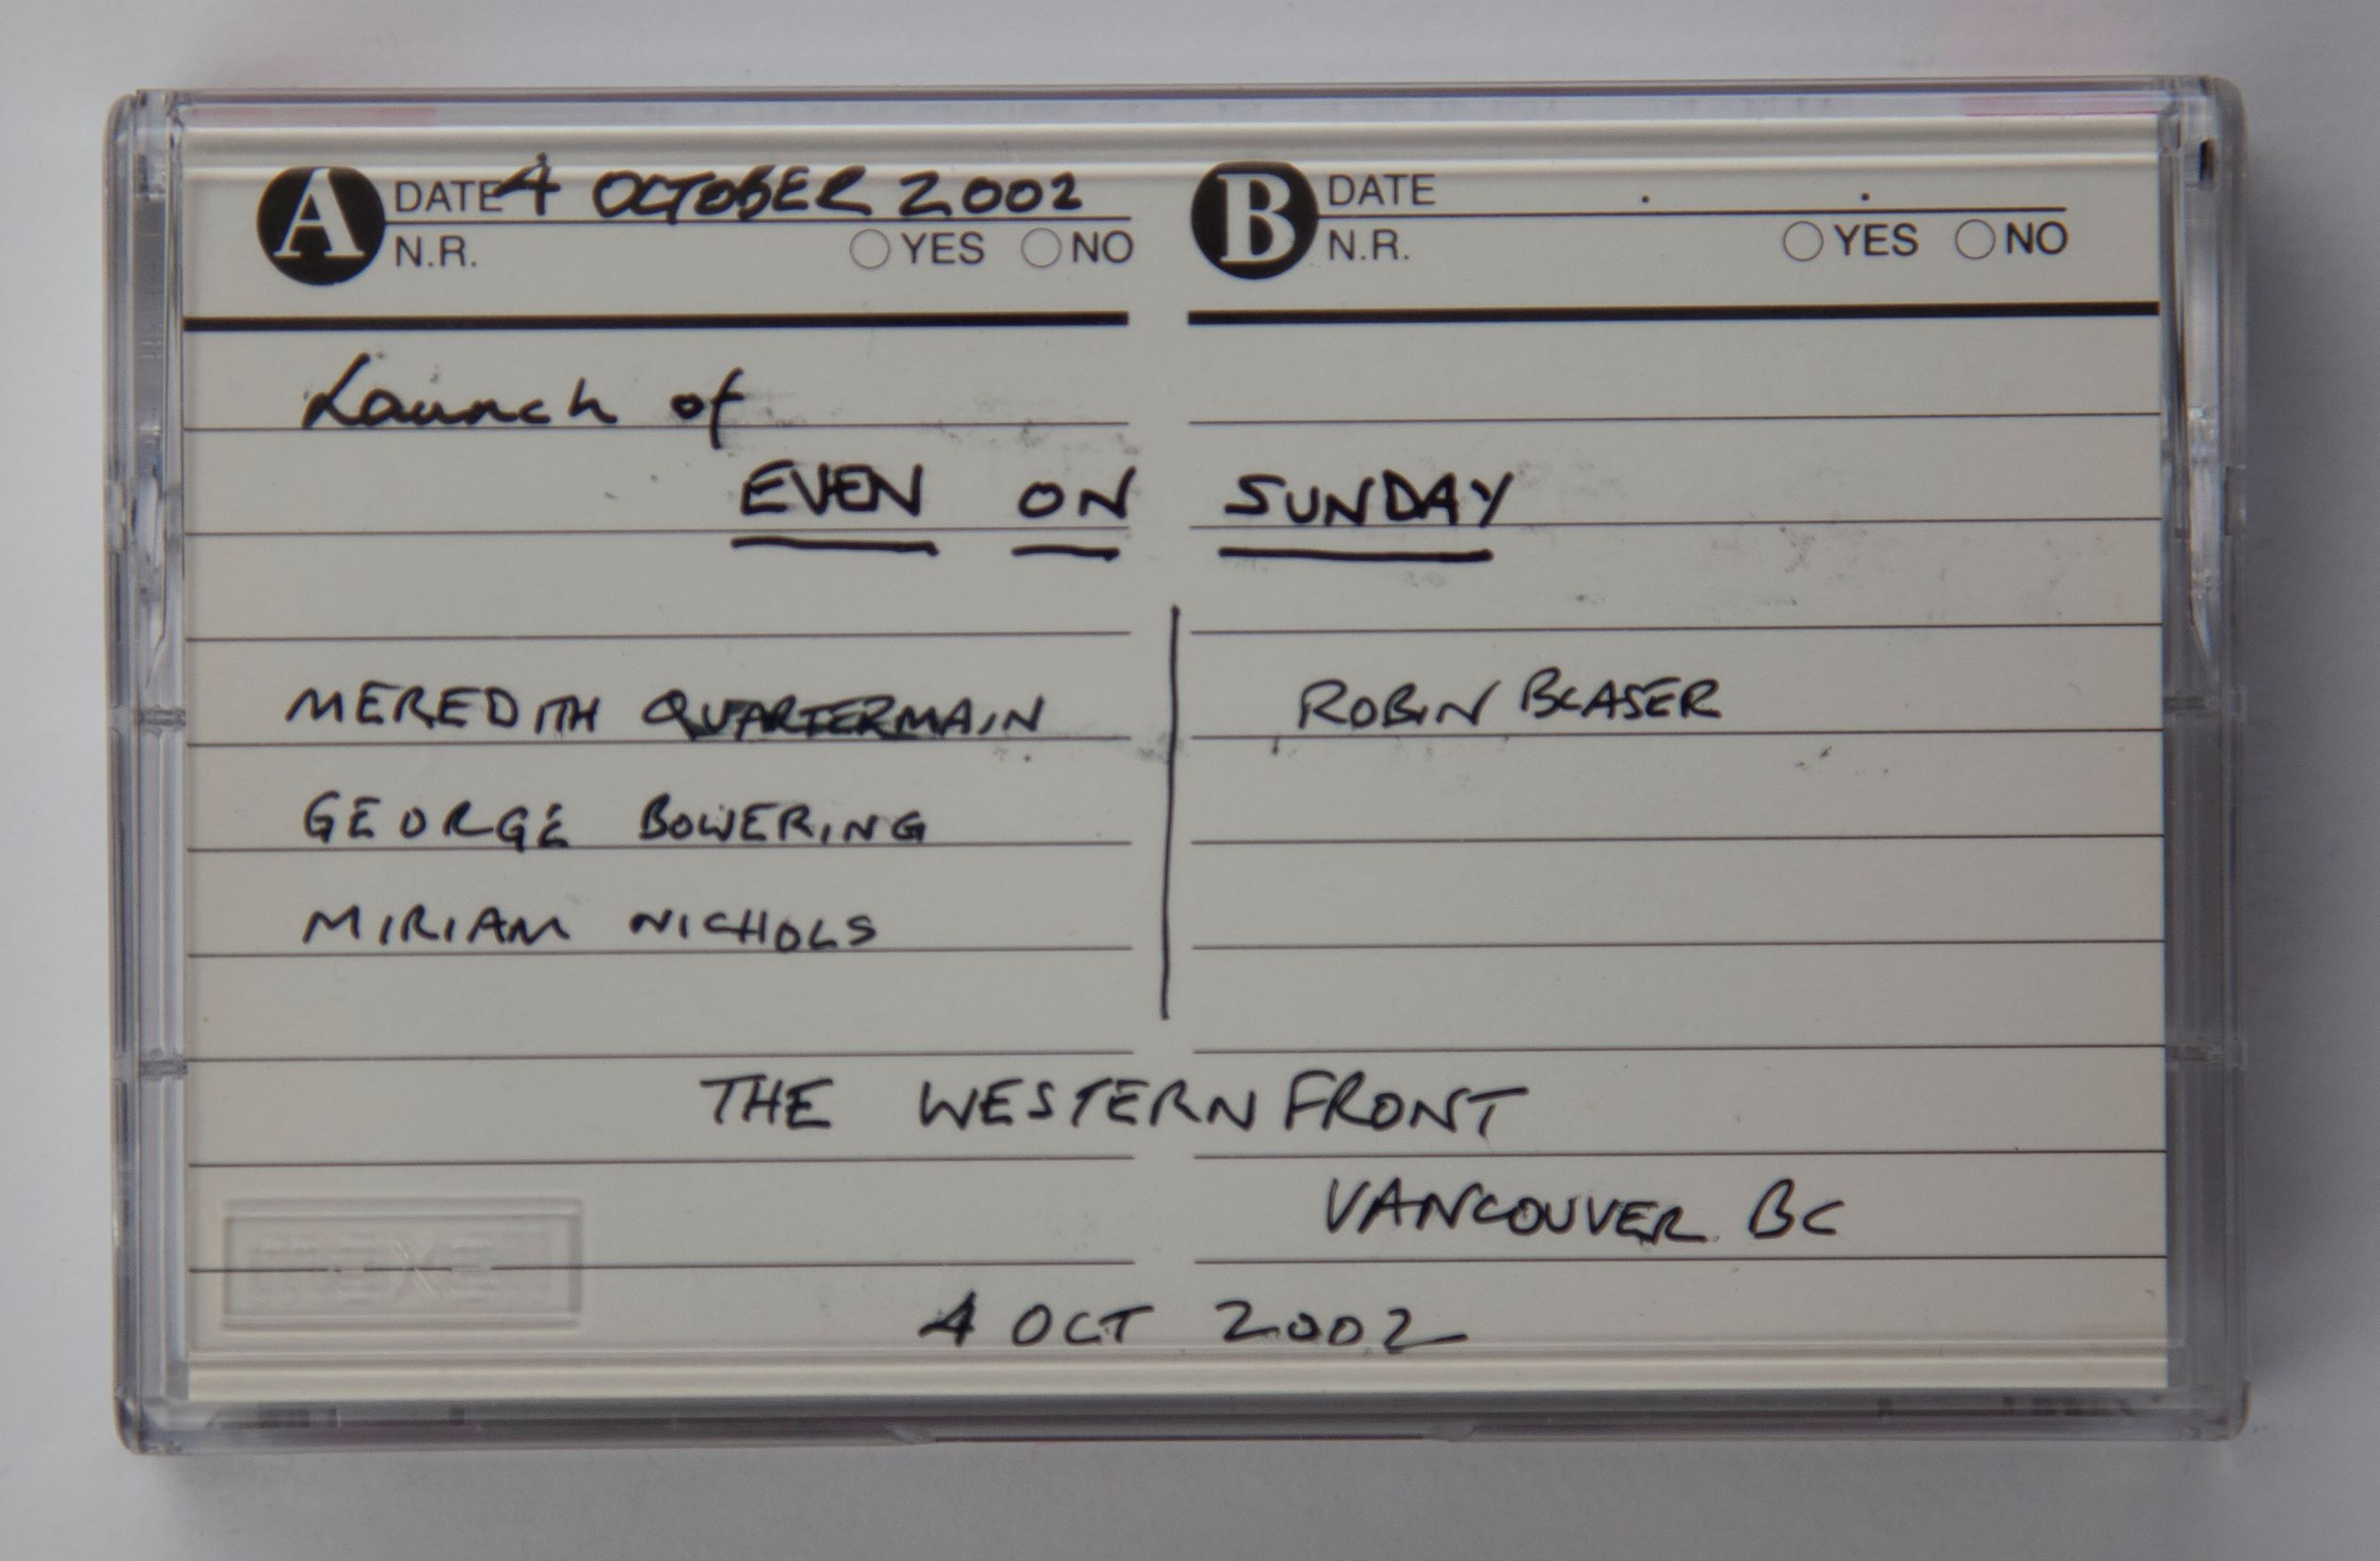 A DATE 4 OCTOBER 2002
N.R. YES NO
B DATE
N.R. YES NO
Launch of
EVEN ON SUNDAY
MEREDITH QUARTERMAIN
GEORGE BOWERING
MIRIAM NICHOLS
ROBIN BLASER
THE WESTERN FRONT
VANCOUVER BC
4 OCT 2002